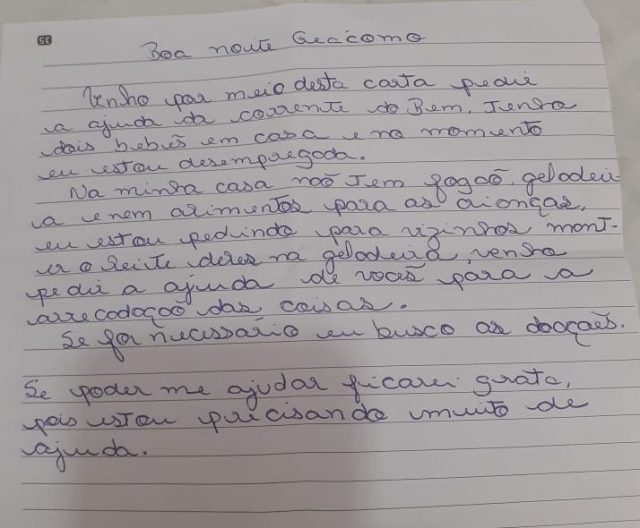 SC
Boa noite Geácomo
Venho por meio desta carta pedir
a ajuda da corrente do Bem. Tenho
dois bebês em casa e no momento
eu estou desempregada.
Na minha casa não tem fogaõ, geladeir-
a e nem arimentos para as crionças,
eu estou pedindo para vizinhos mant-
er o leite deles na geladeira, venho
pedir a ajuda de voces para a
arrecadação das coisas.
Se for necessário eu busco as doações.
Se poder me ajudar ficarei grata,
pois estou precisando muito de
ajuda.